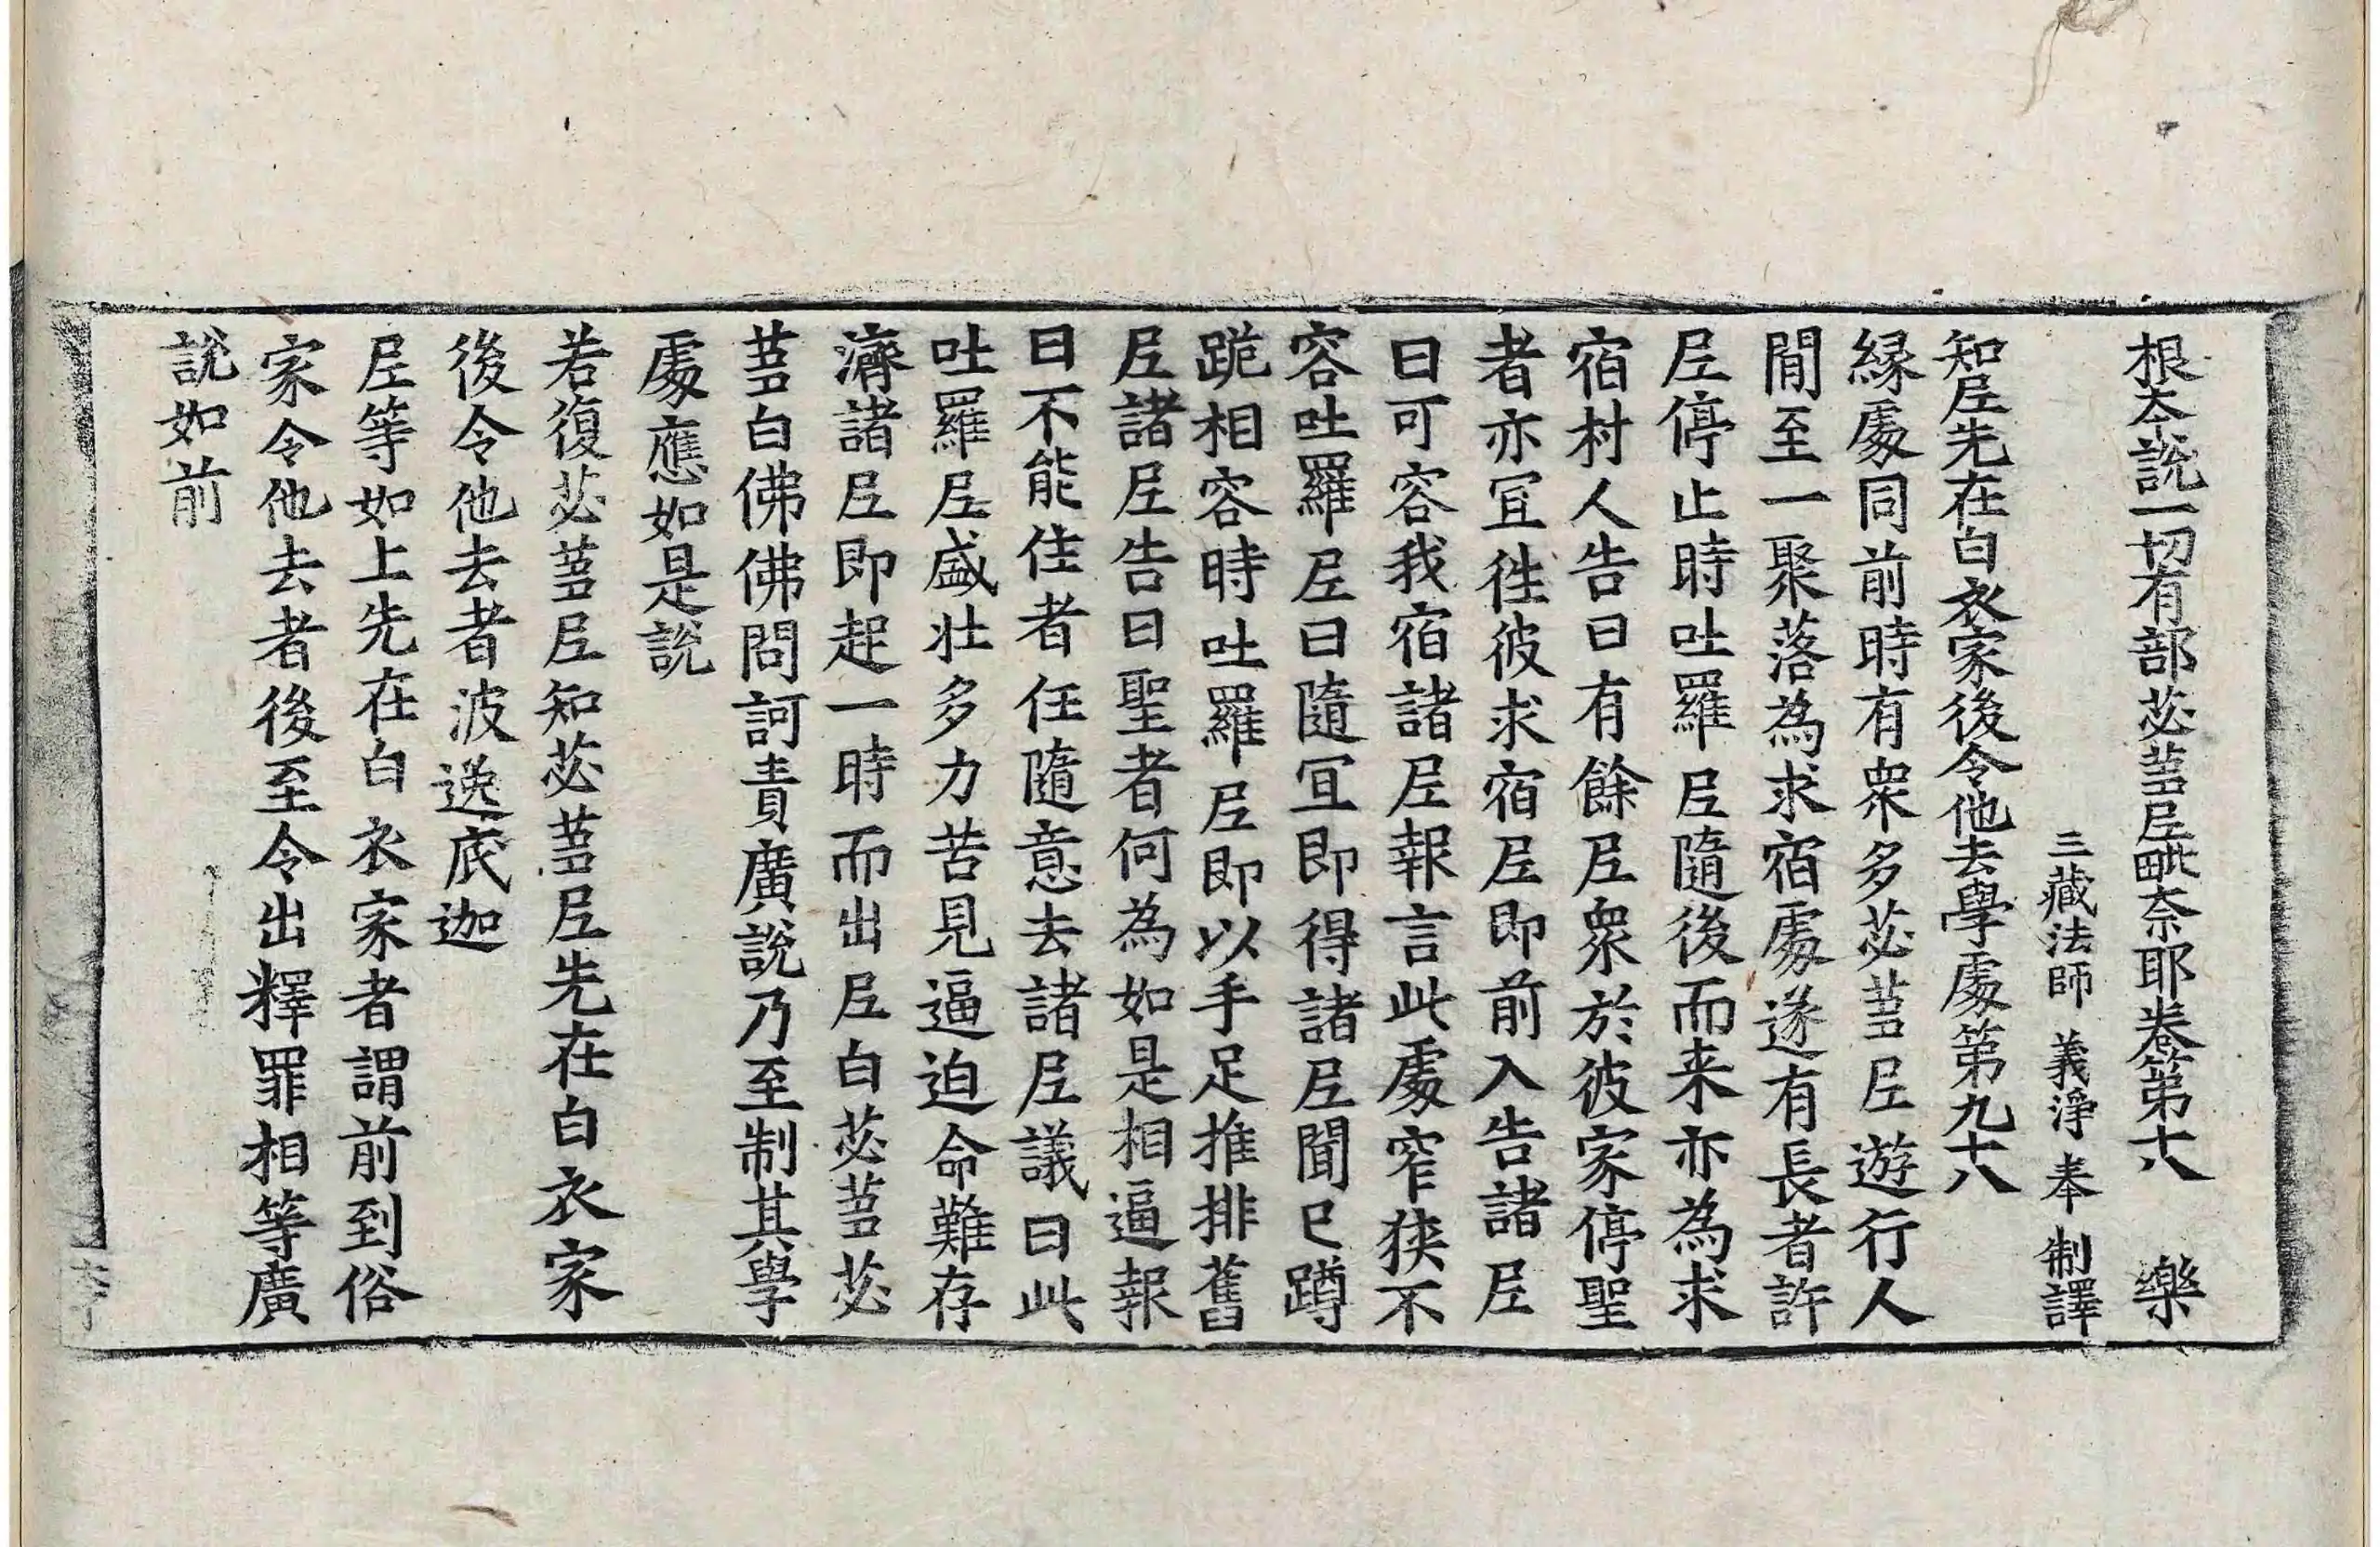 根夲說一切有部苾蒭𡰱毗奈耶卷第十八　樂
三藏法師　義淨　奉　制譯
知𡰱先在白衣家後令他去學處第九十八
緣處同前時有衆多苾蒭𡰱遊行人
間至一聚落為求宿處遂有長者許
𡰱停止時吐羅𡰱隨後而来亦為求
宿村人告曰有餘𡰱衆於彼家停聖
者亦宜徃彼求宿𡰱即前入告諸𡰱
曰可容我宿諸𡰱報言此處窄狹不
容吐羅𡰱曰隨宜即得諸𡰱聞已蹲
跪相容時吐羅𡰱即以手足推排舊
𡰱諸𡰱告曰聖者何為如是相逼報
曰不能住者任隨意去諸𡰱議曰此
吐羅𡰱盛壮多力苦見逼迫命難存
濟諸𡰱即起一時而出𡰱白苾蒭苾
蒭白佛佛問訶責廣說乃至制其學
處應如是說
若復苾蒭𡰱知苾蒭𡰱先在白衣家
後令他去者波逸底迦
𡰱等如上先在白衣家者謂前到俗
家令他去者後至令出釋罪相等廣
說如前